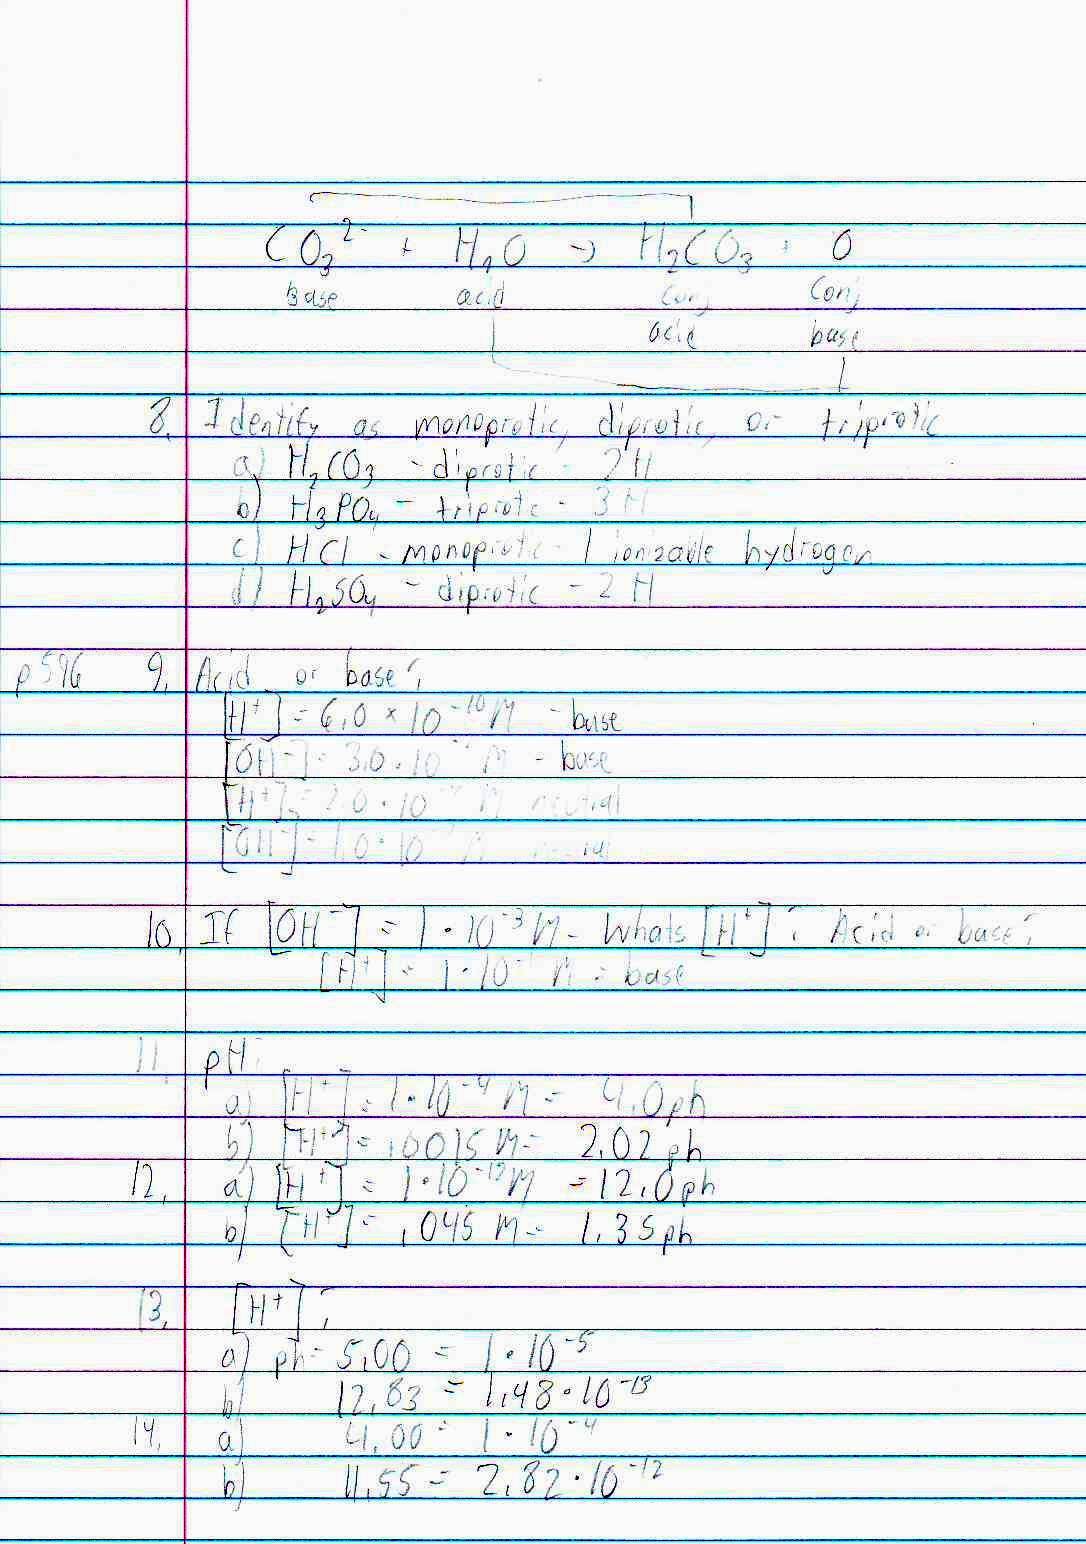 CO₃²⁻ + H₂O → H₂CO₃ + O
Base acid Conj Conj
acid base
8. Identify as monoprotic, diprotic, or triprotic
a) H₂CO₃ - diprotic - 2 H
b) H₃PO₄ - triprotic - 3 H
c) HCl - monoprotic - 1 ionizable hydrogen
d) H₂SO₄ - diprotic - 2 H
p596 9. Acid or base?
[H⁺] = 6.0 × 10⁻¹⁰ M - base
[OH⁻] = 3.0 · 10 M - base
[H⁺] = 2.0 · 10 M neutral
[OH⁻] = 1.0 · 10 M
10. If [OH⁻] = 1 · 10⁻³ M - Whats [H⁺]? Acid or base?
[H⁺] = 1 · 10 M = base
11. pH?
a) [H⁺] = 1 · 10⁻⁴ M = 4.0 ph
b) [H⁺] = .0015 M = 2.02 ph
12. a) [H⁺] = 1 · 10⁻¹² M = 12.0 ph
b) [H⁺] = .045 M = 1.35 ph
13. [H⁺]?
a) ph = 5.00 = 1 · 10⁻⁵
b) 12.83 = 1.48 · 10⁻¹³
14. a) 4.00 = 1 · 10⁻⁴
b) 11.55 = 2.82 · 10⁻¹²